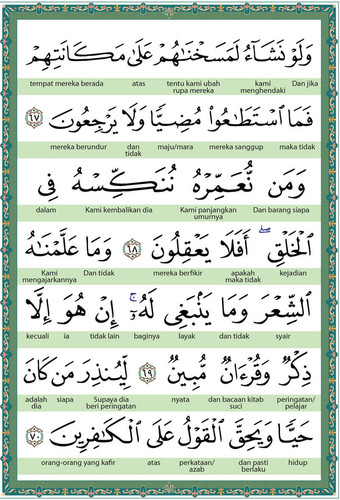 وَلَوْ نَشَآءُ لَمَسَخْنَٰهُمْ عَلَىٰ مَكَانَتِهِمْ
tempat mereka berada atas tentu kami ubah rupa mereka kami menghendaki Dan jika
فَمَا ٱسْتَطَٰعُوا۟ مُضِيًّا وَلَا يَرْجِعُونَ ٦٧
mereka berundur dan tidak maju/mara mereka sanggup maka tidak
وَمَن نُّعَمِّرْهُ نُنَكِّسْهُ فِى
dalam Kami kembalikan dia Kami panjangkan umurnya Dan barang siapa
ٱلْخَلْقِ ۖ أَفَلَا يَعْقِلُونَ ٦٨ وَمَا عَلَّمْنَٰهُ
Kami mengajarkannya Dan tidak mereka berfikir apakah maka tidak kejadian
ٱلشِّعْرَ وَمَا يَنۢبَغِى لَهُۥٓ ۚ إِنْ هُوَ إِلَّا
kecuali ia tidak lain baginya layak dan tidak syair
ذِكْرٌ وَقُرْءَانٌ مُّبِينٌ ٦٩ لِّيُنذِرَ مَن كَانَ
adalah dia siapa Supaya dia beri peringatan nyata dan bacaan kitab suci peringatan/ pelajar
حَيًّا وَيَحِقَّ ٱلْقَوْلُ عَلَى ٱلْكَٰفِرِينَ ٧٠
orang-orang yang kafir atas perkataan/ azab dan pasti berlaku hidup